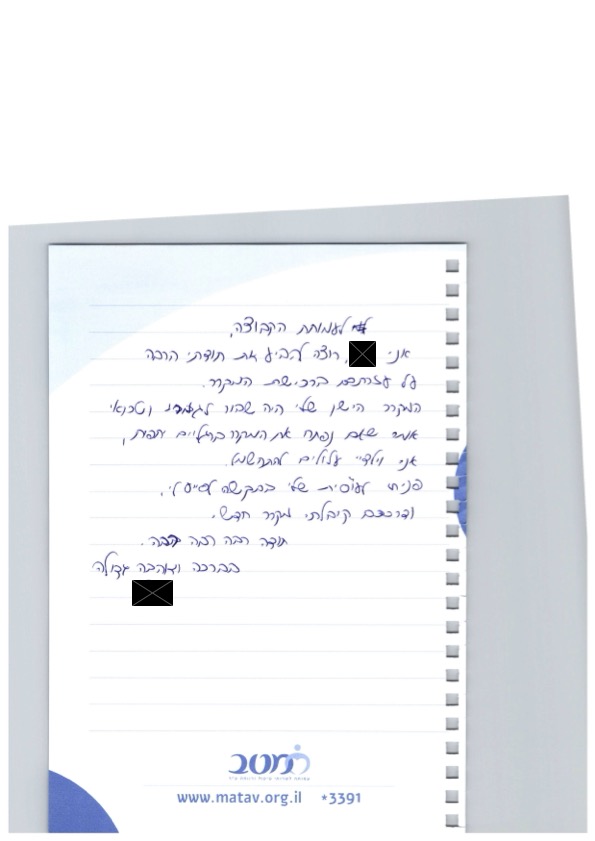 לעמותת הקבוצה,
אני, רוצה להביע את תודתי הרבה
על עזרתכם ברכישת המקרר.
המקרר הישן שלי היה שבור לגמרי וטכנאי
אמר שאם נפתח את המקרר ברגליים יחפות,
אני וילדיי עלולים להתחשמל.
פניתי לעו"סית שלי בבקשה לסייע לי,
ודרככם קיבלתי מקרר חדש.
תודה רבה רבה רבה.
בברכה ואהבה גדולה
מטב
www.matav.org.il *3391